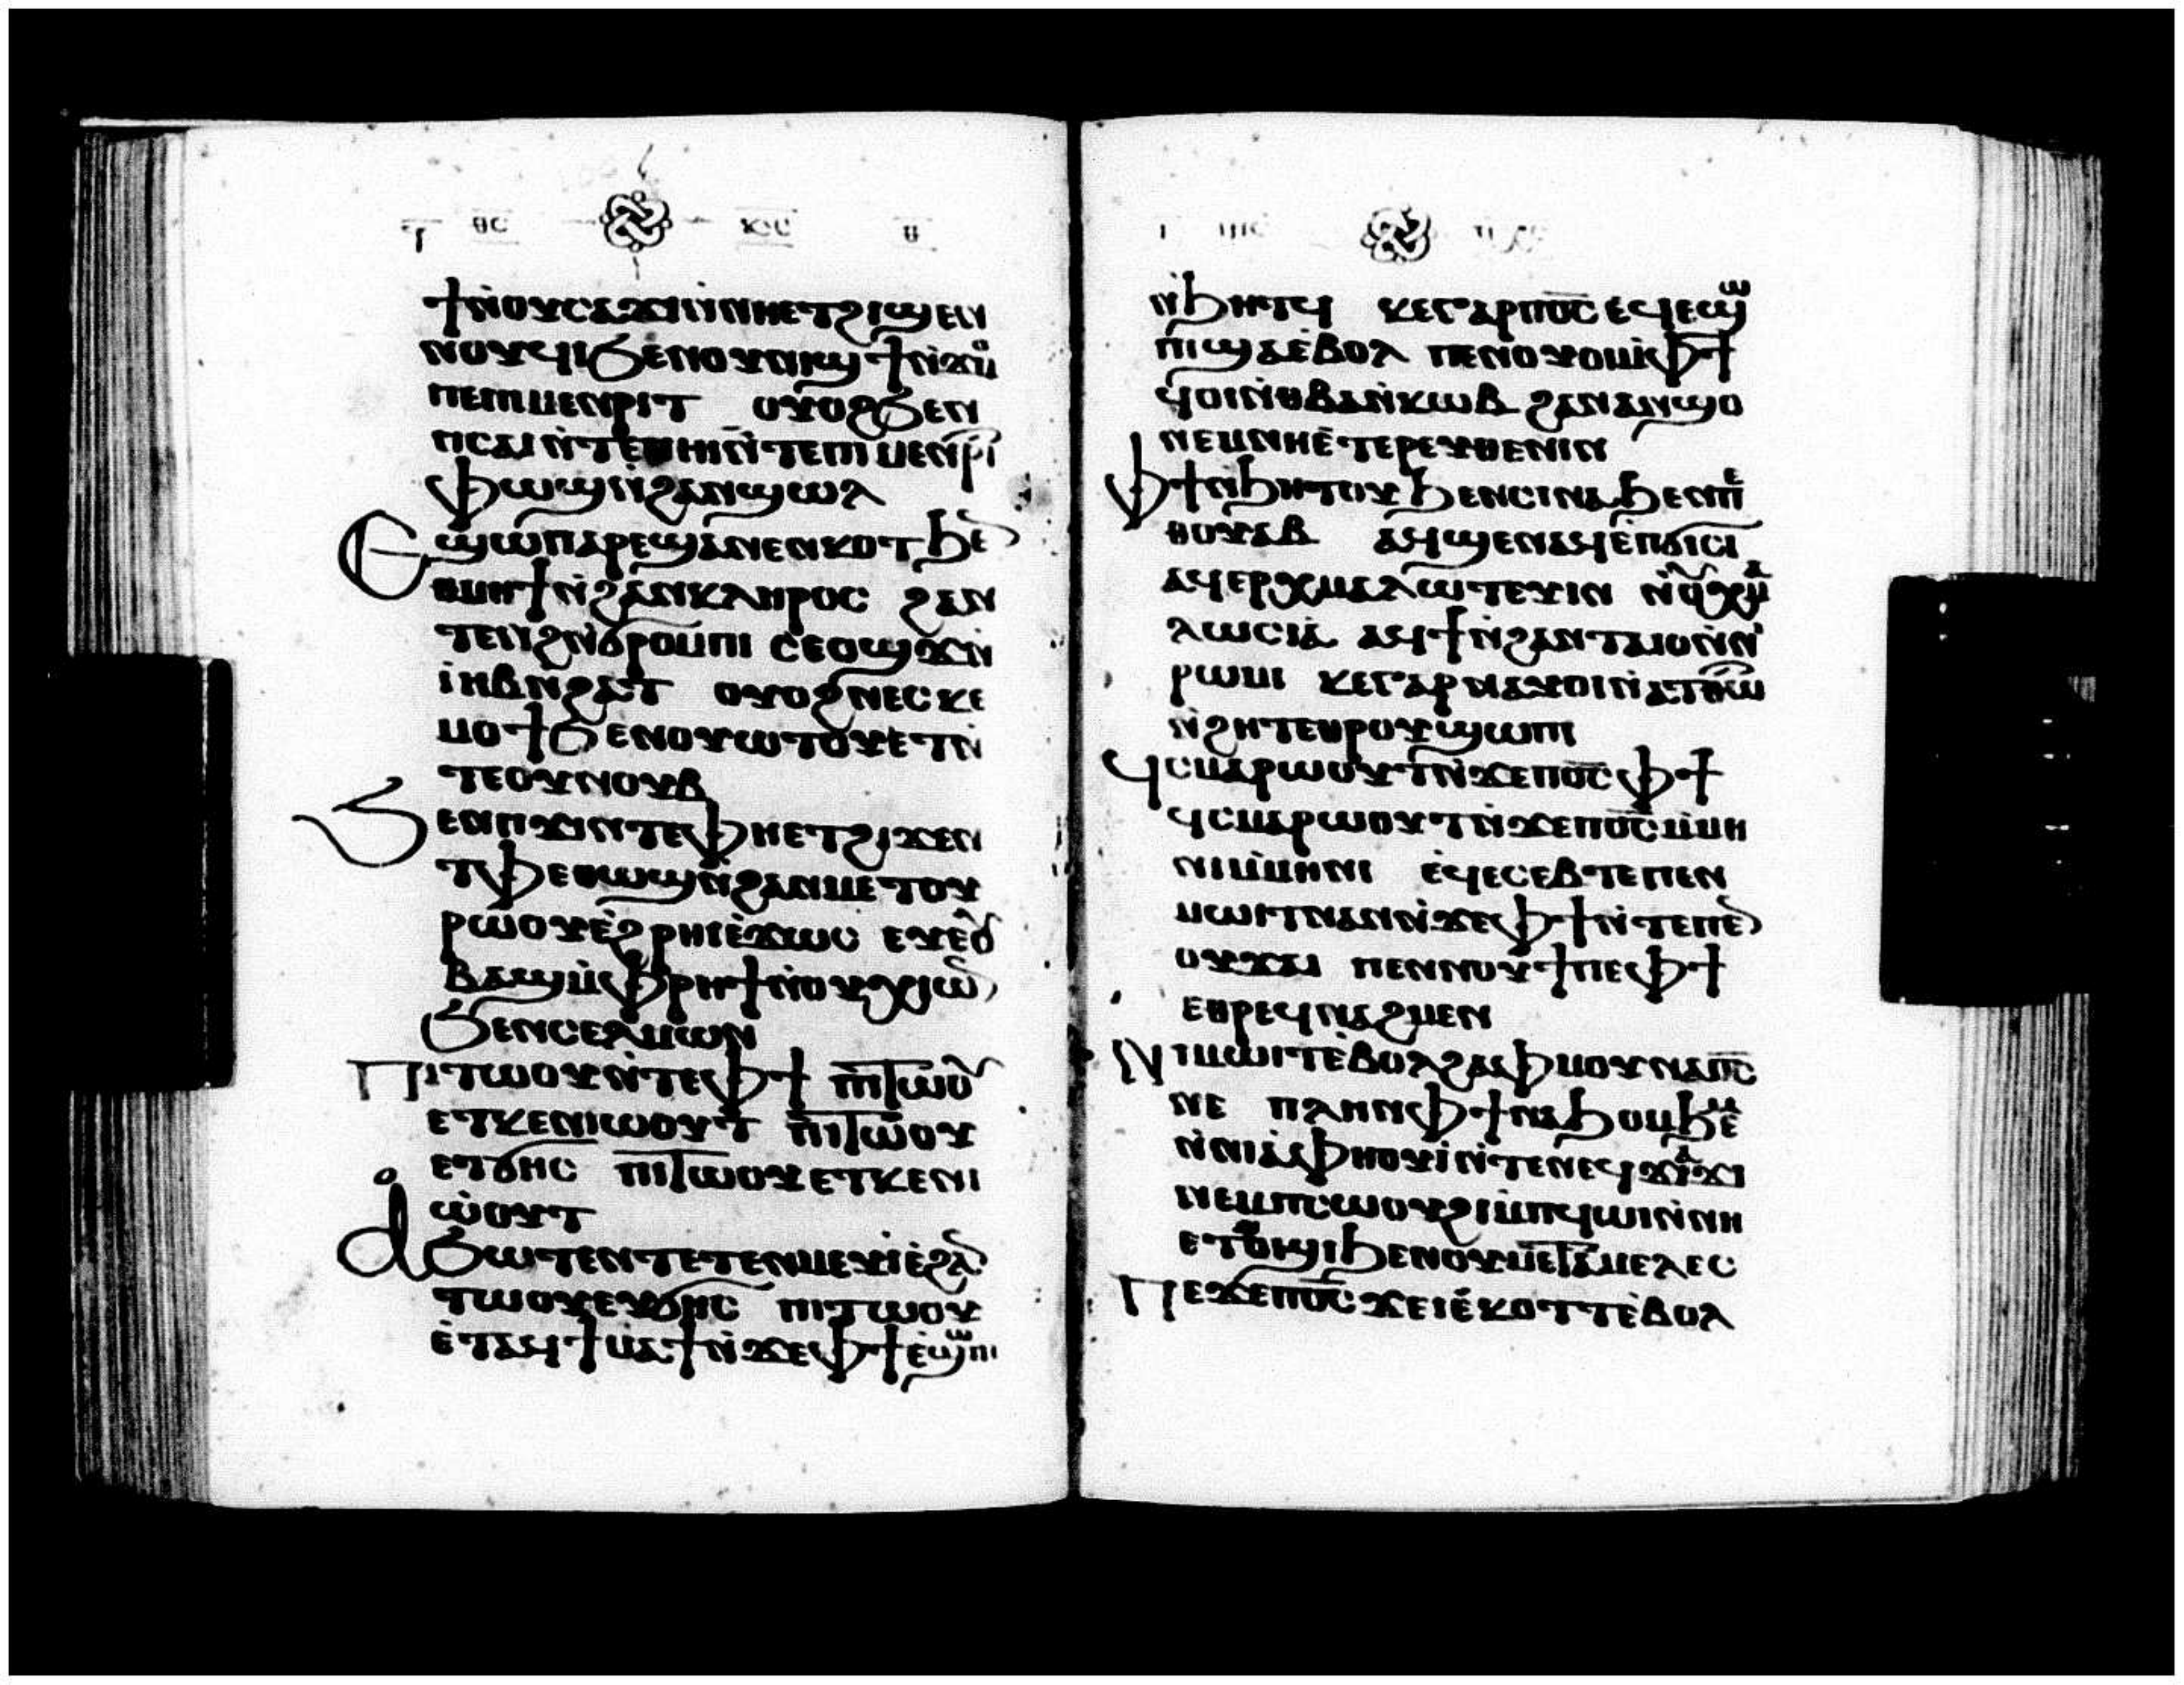 ϯⲛⲟⲩⲥⲁϫⲓⲛ̀ⲛⲏⲉⲧϩⲓϣⲉⲛ
ⲛⲟⲩϥⲓϧⲉⲛⲟⲩⲛⲓϣϯⲛ̀ϫⲟⲙ
ⲡⲉⲡⲓⲙⲉⲛⲣⲓⲧ ⲟⲩⲟϩϧⲉⲛ
ⲡⲥⲁⲓⲛ̀ⲧⲉⲡⲏⲓⲛ̀ⲧⲉⲡⲓⲙⲉⲛⲣⲓ
ⲫⲱϣⲛ̀ϩⲁⲛϣⲱⲗ
Ⲉϣⲱⲡⲁⲣⲉϣⲁⲛⲉⲛⲕⲟⲧϧⲉ
ⲑⲙⲏϯⲛ̀ϩⲁⲛⲕⲗⲏⲣⲟⲥ ϩⲁⲛ
ⲧⲉⲛϩⲛ̀ϭⲣⲟⲙⲡⲓ ⲥⲉⲟϣϫⲛ̀
ⲓⲏⲃⲛϩⲁⲧ ⲟⲩⲟϩⲛⲉⲥⲕⲉ
ⲙⲟϯϧⲉⲛⲟⲩⲱⲧⲟⲩⲉⲧⲛ̀
ⲧⲉⲟⲩⲛⲟⲩⲃ
Ϧⲉⲛⲡϫⲓⲛⲧⲉⲫⲏⲉⲧϩⲓϫⲉⲛ
ⲧⲫⲉⲑⲱϣⲛ̀ϩⲁⲛⲙⲉⲧⲟⲩ
ⲣⲱⲟⲩⲉ̀ϩⲣⲏⲓⲉ̀ϫⲱⲥ ⲉⲩⲉⲟ
ⲃⲁϣⲙ̀ⲫⲣⲏϯⲛ̀ⲟⲩⲭⲓⲱ
ϧⲉⲛⲥⲉⲗⲙⲱⲛ
Ⲡⲓⲧⲱⲟⲩⲛ̀ⲧⲉⲫϯ ⲡⲓⲧⲱⲟⲩ
ⲉⲧⲕⲉⲛⲓⲱⲟⲩⲧ ⲡⲓⲧⲱⲟⲩ
ⲉⲧϭⲏⲥ ⲡⲓⲧⲱⲟⲩⲉⲧⲕⲉⲛⲓ
ⲱ̀ⲟⲩⲧ
Ⲁϧⲱⲧⲉⲛⲧⲉⲧⲉⲛⲙⲉⲩⲓⲉ̀ϩⲁ
ⲧⲱⲟⲩⲉⲩϭⲏⲥ ⲡⲓⲧⲱⲟⲩ
ⲉ̀ⲧⲁϥϯⲙⲁϯⲛ̀ϫⲉⲫϯⲉ̀ϣⲱⲡⲓ
ⲛ̀ϧⲏⲧϥ ⲕⲉⲅⲁⲣⲡⲟ̅ⲥ̅ⲉϥⲉϣⲱ
ⲡⲓϣⲁⲉ̀ⲃⲟⲗ ⲡⲉⲛⲟⲩⲟⲙ̀ⲫϯ
ϥⲟⲓⲛ̀ⲑⲃⲁⲛ̀ⲕⲱⲃ ϩⲁⲛⲁⲛϣⲟ
ⲛⲉⲙⲛⲏⲉ̀ⲧⲉⲣⲉⲩⲑⲉⲛⲓⲛ
Ⲫϯⲛ̀ϧⲏⲧⲟⲩϧⲉⲛⲥⲓⲛⲁϧⲉⲛⲡⲉ
ⲑⲟⲩⲁⲃ ⲁϥϣⲉⲛⲁϥⲉ̀ⲡϭⲓⲥⲓ
ⲁϥⲉⲣⲭⲙⲁⲗⲱⲧⲉⲩⲓⲛ ⲛ̀ⲟⲩⲭⲙⲁ
ⲗⲱⲥⲓⲁ̀ ⲁϥϯⲛ̀ϩⲁⲛⲧⲁⲓⲟⲛ̀ⲛⲓ
ⲣⲱⲙⲓ ⲕⲉⲅⲁⲣⲛⲁⲩⲟⲓⲛ̀ⲁⲧⲑⲱ
ⲛ̀ϩⲏⲧⲉⲑⲣⲟⲩϣⲱⲡⲓ
Ϥⲥⲙⲁⲣⲱⲟⲩⲧⲛ̀ϫⲉⲡⲟ̅ⲥ̅ⲫϯ
ϥⲥⲙⲁⲣⲱⲟⲩⲧⲛ̀ϫⲉⲡⲟ̅ⲥ̅ⲙ̀ⲙⲏ
ⲛⲓⲙ̀ⲙⲏⲛⲓ ⲉ̀ϥⲉⲥⲉⲃⲧⲉⲡⲉⲛ
ⲙⲱⲓⲧⲛⲁⲛⲛ̀ϫⲉⲫϯⲛ̀ⲧⲉⲡⲉ
ⲟⲩϫⲁⲓ ⲡⲉⲛⲛⲟⲩϯⲡⲉⲫϯ
ⲉⲑⲣⲉϥⲛⲁϩⲙⲉⲛ
Ⲛⲓⲙⲱⲓⲧⲉ̀ⲃⲟⲗϩⲁⲫⲙⲟⲩⲛⲁⲡⲟ̅ⲥ̅
ⲛⲉ ⲡⲗⲏⲛⲫϯⲛⲁϧⲟⲙϧⲉⲙ
ⲛ̀ⲛⲓⲁⲫⲏⲟⲩⲓ̀ⲛ̀ⲧⲉⲛⲉϥϫⲁϫⲓ
ⲛⲉⲙⲡⲥⲱⲟⲩϩⲓⲙ̀ⲡϥⲱⲓⲛ̀ⲛⲏ
ⲉⲑⲙⲟϣⲓϧⲉⲛⲟⲩⲙⲉⲧⲁⲙⲉⲗⲉⲥ
Ⲡⲉϫⲉⲡⲟ̅ⲥ̅ϫⲉⲓⲉ̀ⲕⲟⲧⲧⲉ̀ⲃⲟⲗ